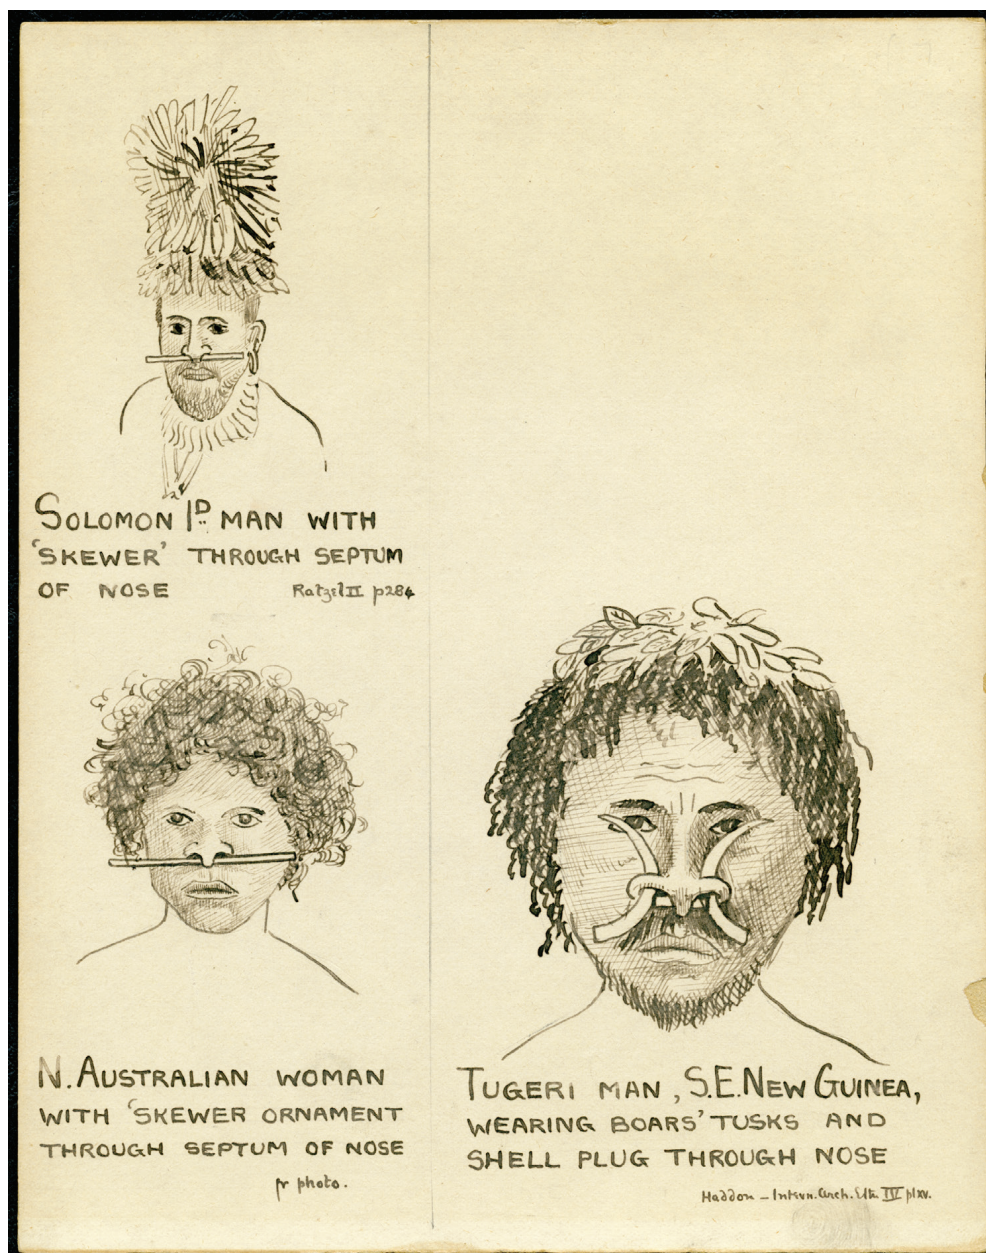 SOLOMON ID. MAN WITH
'SKEWER' THROUGH SEPTUM
OF NOSE Ratzel II p284
N. AUSTRALIAN WOMAN
WITH 'SKEWER ORNAMENT
THROUGH SEPTUM OF NOSE
fr photo.
TUGERI MAN, S.E. NEW GUINEA,
WEARING BOARS' TUSKS AND
SHELL PLUG THROUGH NOSE
Haddon – Intern. Arch. Eth. IV pl xv.